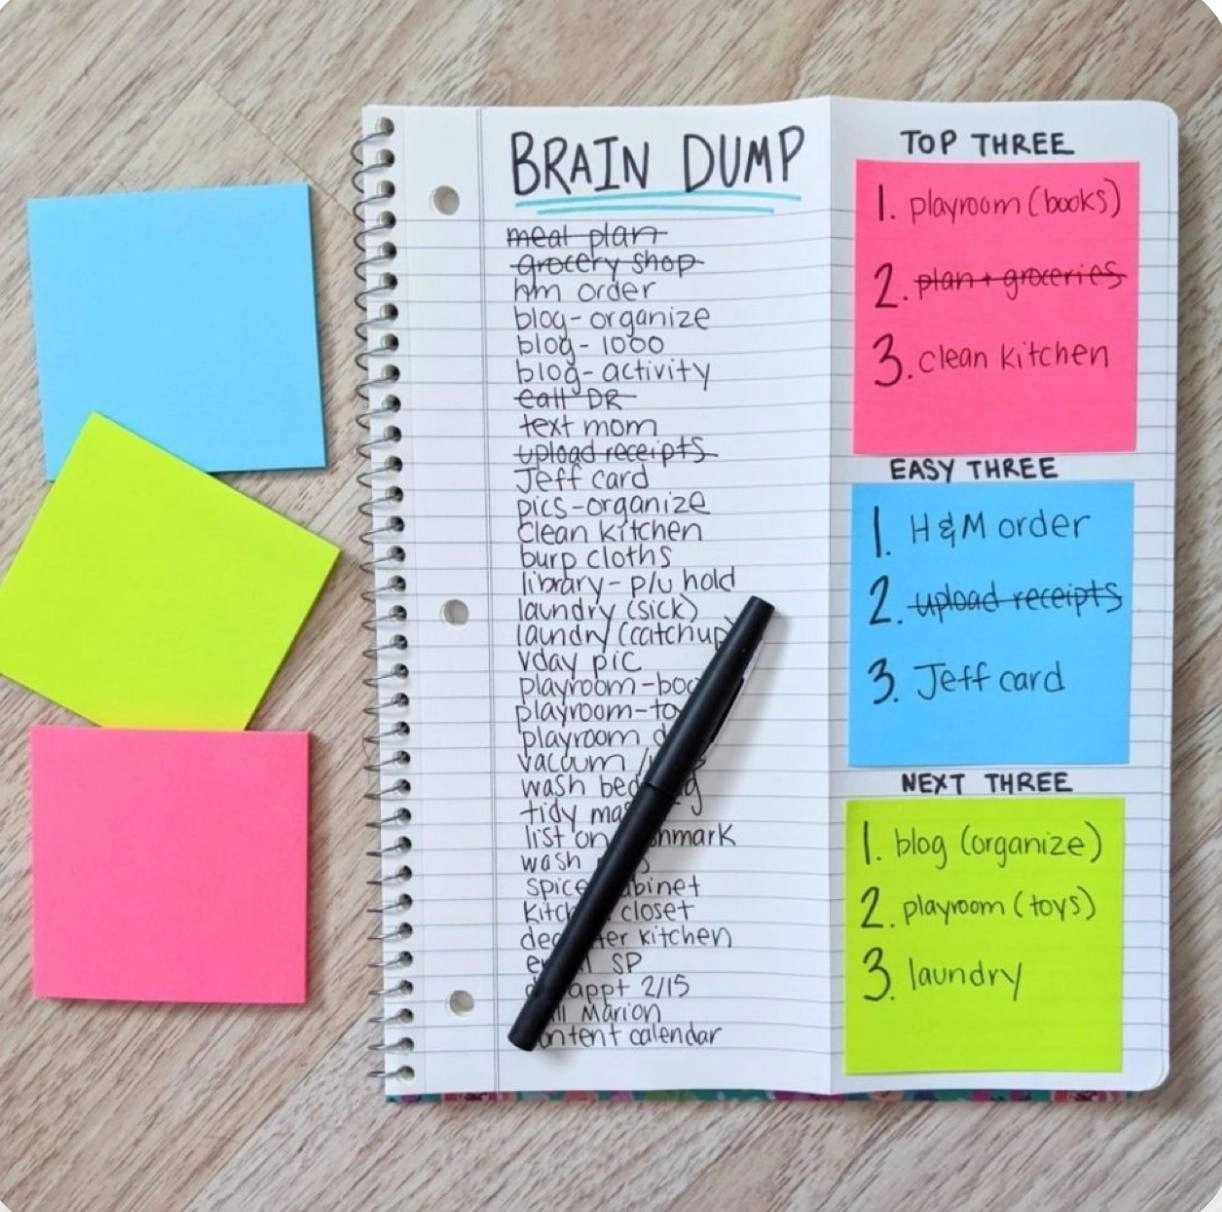 BRAIN DUMP
meal plan
grocery shop
hm order
blog-organize
blog-1000
blog-activity
call DR
text mom
upload receipts
Jeff card
pics-organize
clean kitchen
burp cloths
library-p/u hold
laundry (sick)
laundry (catchup)
vday pic
playroom-
playroom-
playroom
vacuum /
wash
tidy
list on
wash
spice
closet
kitchen
SP
appt 2/15
Marion
calendar
TOP THREE
1. playroom (books)
2. plan + groceries
3. clean kitchen
EASY THREE
1. H&M order
2. upload receipts
3. Jeff card
NEXT THREE
1. blog (organize)
2. playroom (toys)
3. laundry